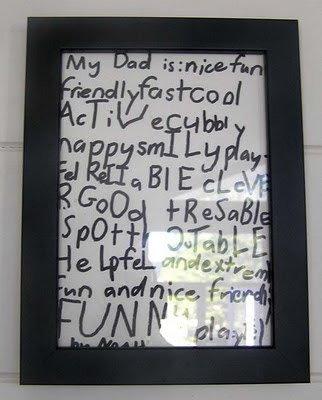 My Dad is:nice fun
friendlyfastcool
AcTiVecubbly
happysmILyplay-
fel ReIIaBlE cLeVE
R GoOd tReSaBle
SpOrtt
HeLpfeL andextrem
fun and nice friend
FUNN play
by Noah